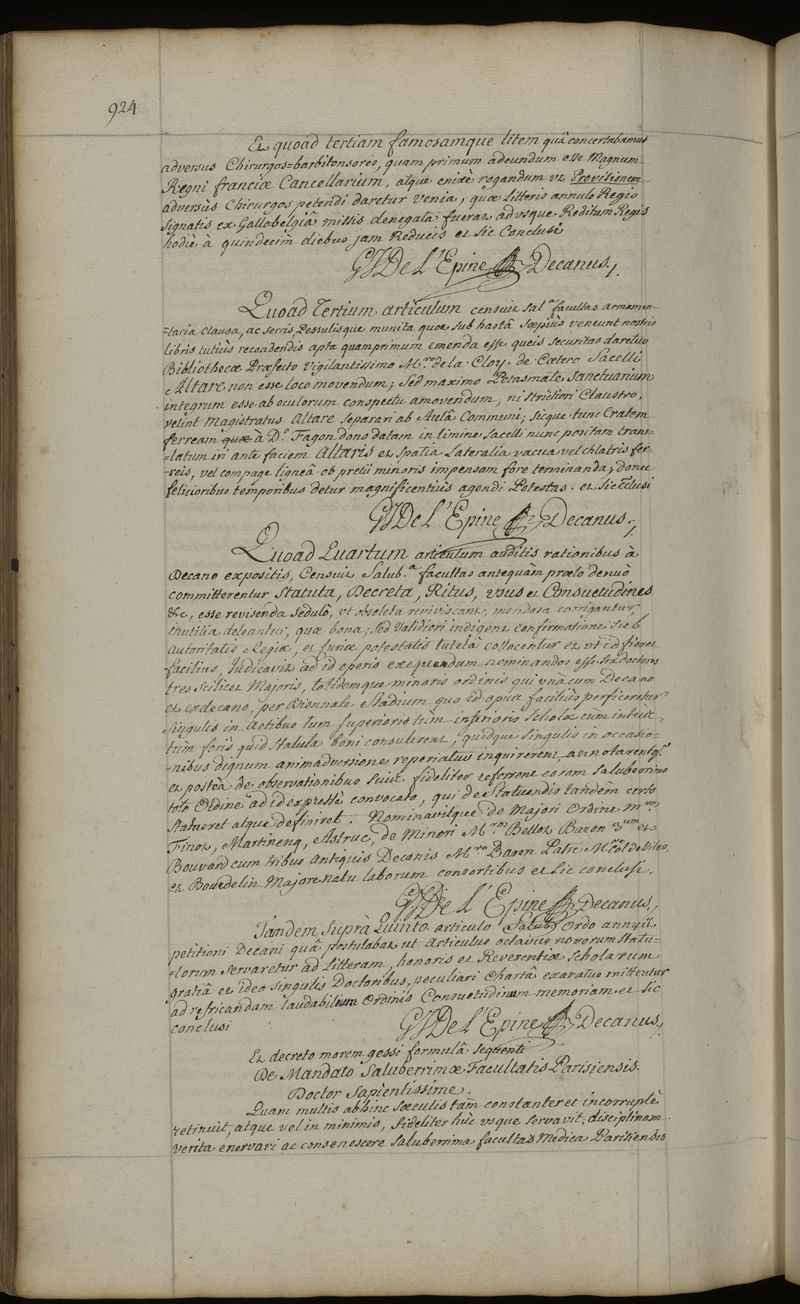 924
Et quoad tertiam famosamque litem quâ concertabamus
adversus Chirurgos=barbitonsores, quam primum adeundum esse Magnum
Regni franciæ Cancellarium, atque enixè rogandum ut Provisionem
adversùs Chirurgos petendi daretur Venia, quæ litteris annulo Regio
signatis ex Gallobelgiâ missis denegata fuerat adusque Reditum Regis
hodie à quindecim diebus jam Reducis et sic Conclusi
GJDe L'Epine Decanus.
Quoad Tertium articulum censuit Sal.ª facultas armamen-
=taria clausa, ac serris Pessulisque munita quæ sub hastâ sæpiùs veneunt nostris
libris tutiùs recondendis apta quamprimum emenda esse queis securitas dare
Bibliothecæ Præfecto Vigilantissimo M.ro de la Cloy. de Cætero Sacelli
Altare non esse loco movendum; sed maximo Petasmate Sanctuarium
integrum esse ab oculorum conspectu amovendum, ni strictiori Claustro,
velint Magistratus Altare separari ab Aulâ Communi; sicque tunc Cratem
ferream quæ à D.º Fagon dono datam in limine Sacelli nunc positam trans-
=latum iri ante faciem Altaris et spatia Lateralia vacua vel chlatris fer-
=reis, vel compage ligneâ ob pretii minoris impensam fore terminanda; donec
felicioribus temporibus detur magnificentiùs agendi Potestas. et sic cclusi
GJDe L'Epine Decanus.
Quoad Quartum articulum auditis rationibus à
Decano expositis, Censuit Salub.ª facultas antequàm prælo denuò
committerentur Statuta, Decreta, Ritus, Usus et Consuetudines
&c, esse revisenda sedulò, ut obsoleta reviviscant, mendosa corrigantur,
Inutilia deleantur, quæ bona; sed validiori indigent confirmatione sub
Autoritatis Regiæ, et furiæ potestatis tutelâ collocentur et ut id fieret
facilius, Judicavit ad id operis exequendum nominandos esse sex doctores
tres scilicet Majoris, totidemque minoris ordinis qui unà cum Decano
et exdecano, per Biennale stadium quo id opus faciliùs perficeretur
singulis in Actibus tum superioris tum inferioris Scholæ cùm intùs,
tùm foris quid Statuta boni consulerent, quidque singulis in occasio-
=nibus dignum animadversione reperiatur inquirerent, annotarentq.e
et posteà de observationibus suis fideliter referrent coram saluberrimo
toto Ordine ad id expressè convocato, qui de Statuendis tandem certo
Statueret atque definiret. Nominavitque de Majori Ordine
finot, Martinenq, Astruc, de Minori M.ros Bellot Baron et
Bouvard cum tribus Antiquis Decanis M.ro Baron Patre
et Bourdelin Majore natu laborum consortibus et sic conclusi.
GJDe L'Epine Decanus.
Tandem Suprà Quinto articulo Salub. Ordo annuit
petitioni Decani quâ postulabat ut Articulus octavus novorum Statu-
=torum servaretur ad Litteram, honoris et Reverentiæ Scholarum
gratiâ et ideo singulis Doctoribus, peculiari Chartâ exaratus mittentur
ad refricandam laudabilium Ordinis Consuetudinum memoriam et sic
conclusi
GJDe L'Epine Decanus.
Et decreto morem gessi formulâ sequenti
De Mandato Saluberrimæ Facultatis Parisiensis.
Doctor Sapientissime.
Quam multis abhinc sæculis tàm constanter et incorruptè
retinuit, atque vel in minimis, fideliter hùc usque servavit, disciplinam
verita enervari ac consenescere saluberrima facultas Medica Parisiensis